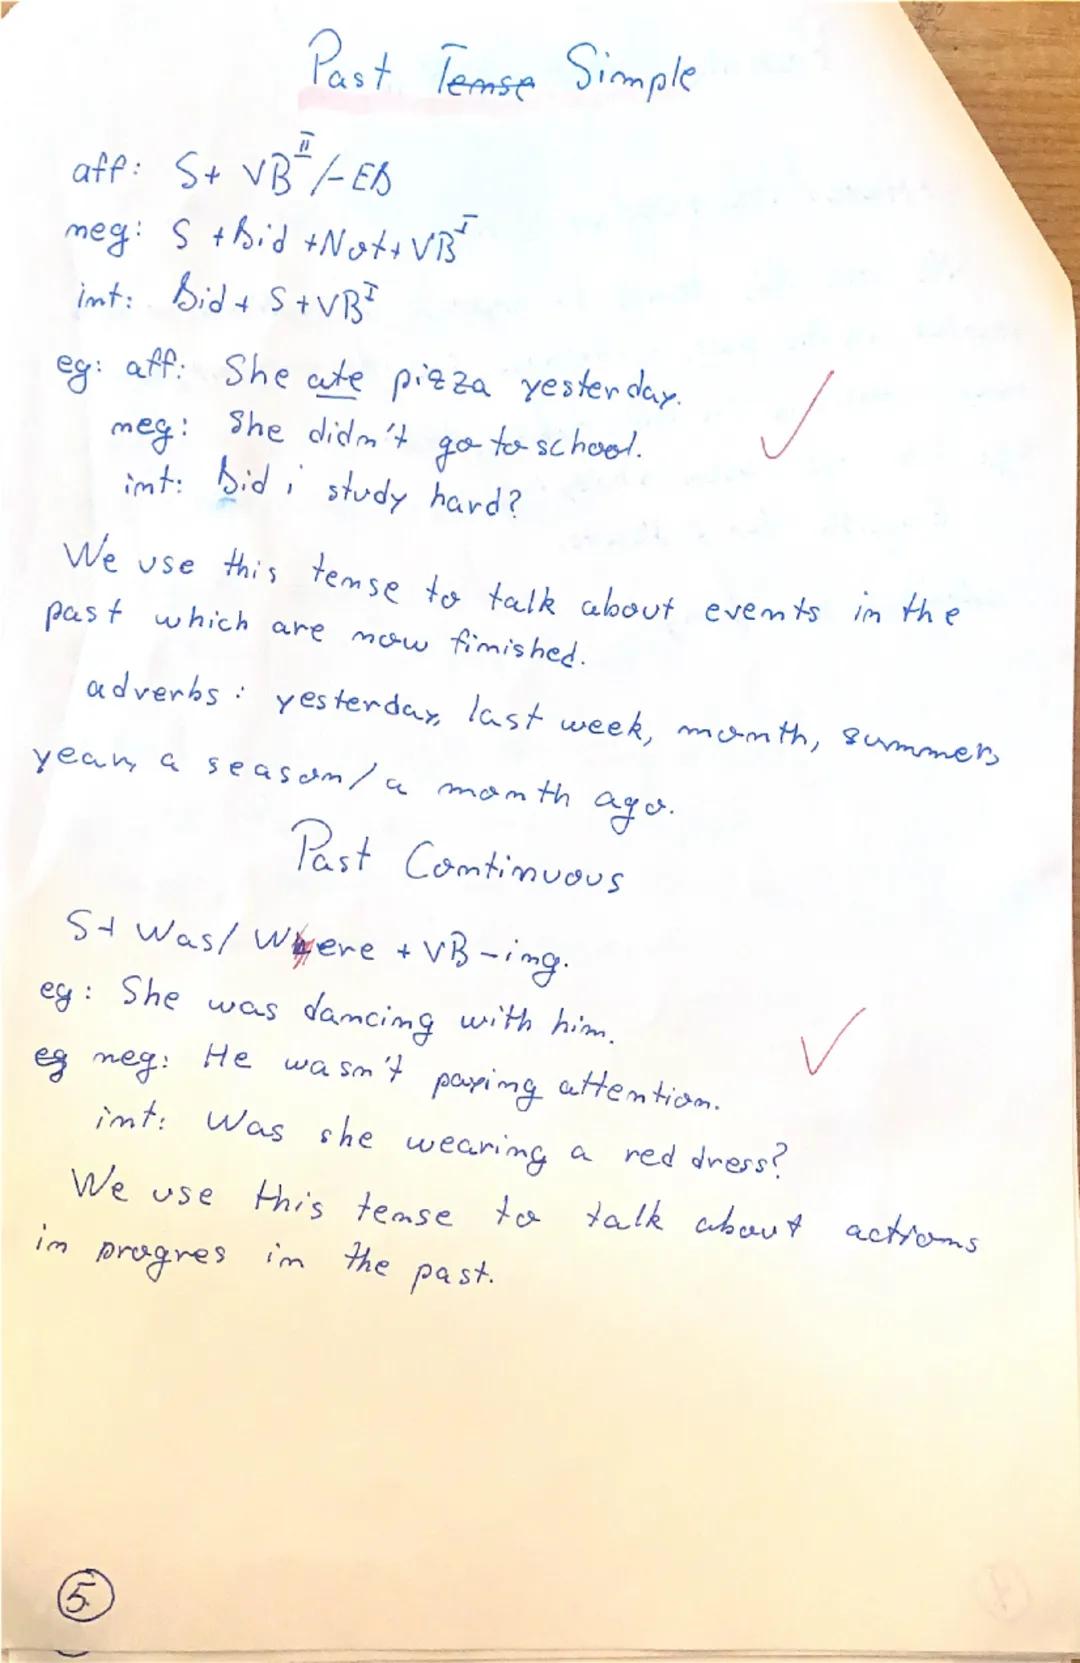 Past Tense Simple
aff: S+ VB II/-ED
neg: S + Did + Not + VB I
int: Did + S + VB I
eg: aff: She ate pizza yesterday.
neg: She didn't go to school.
int: Did i study hard?
We use this tense to talk about events in the
past which are now finished.
adverbs: yesterday, last week, month, summer,
year, a season/a month ago.
Past Continuous
S+ Was/ Were + VB -ing.
eg: She was dancing with him.
eg neg: He wasn't paying attention.
int: Was she wearing a red dress?
We use this tense to talk about actions
in progres in the past.
5